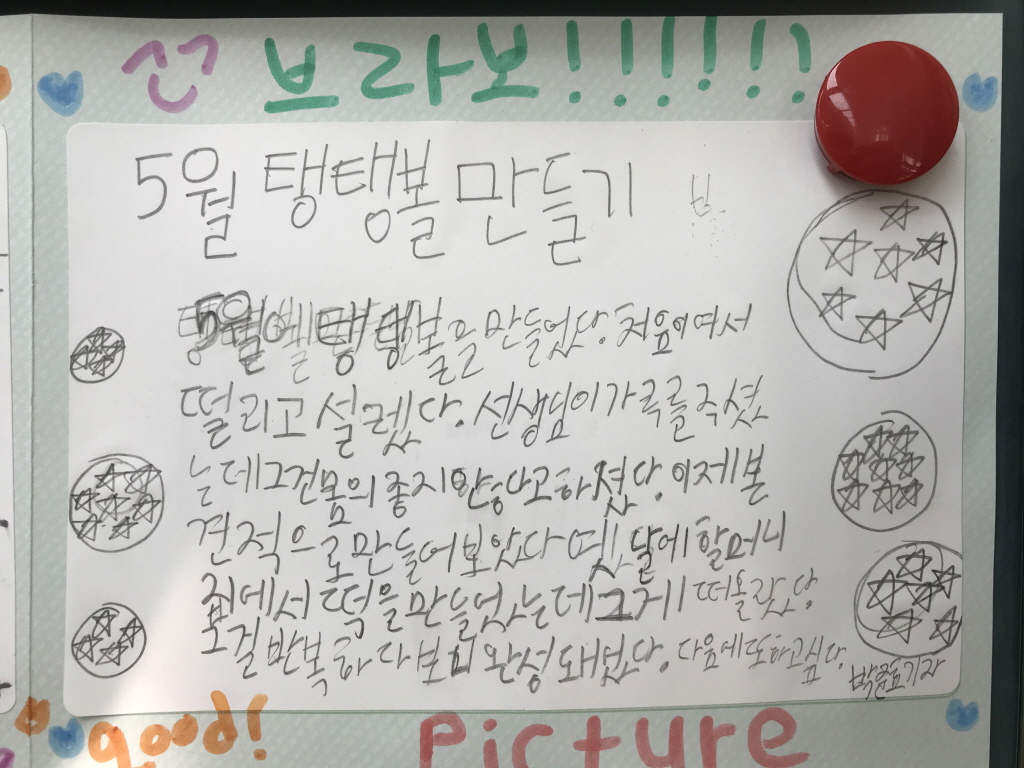 브라보!!!!!!
5월 탱탱볼 만들기
5월에 탱탱볼을 만들었당. 처음이여서
떨리고 설렜당. 선생님이 가륵를 주셨
는데 그건 몸의 좋지 안당다고 하셨당. 이제 본
견적으로 만들어 보았다 옛날에 할머니
집에서 떡을 만들었는데 그게 떠올랐당
그걸 반복하다 보니 완성돼있당. 다음에 또하고싶당.
기자
good!
Picture